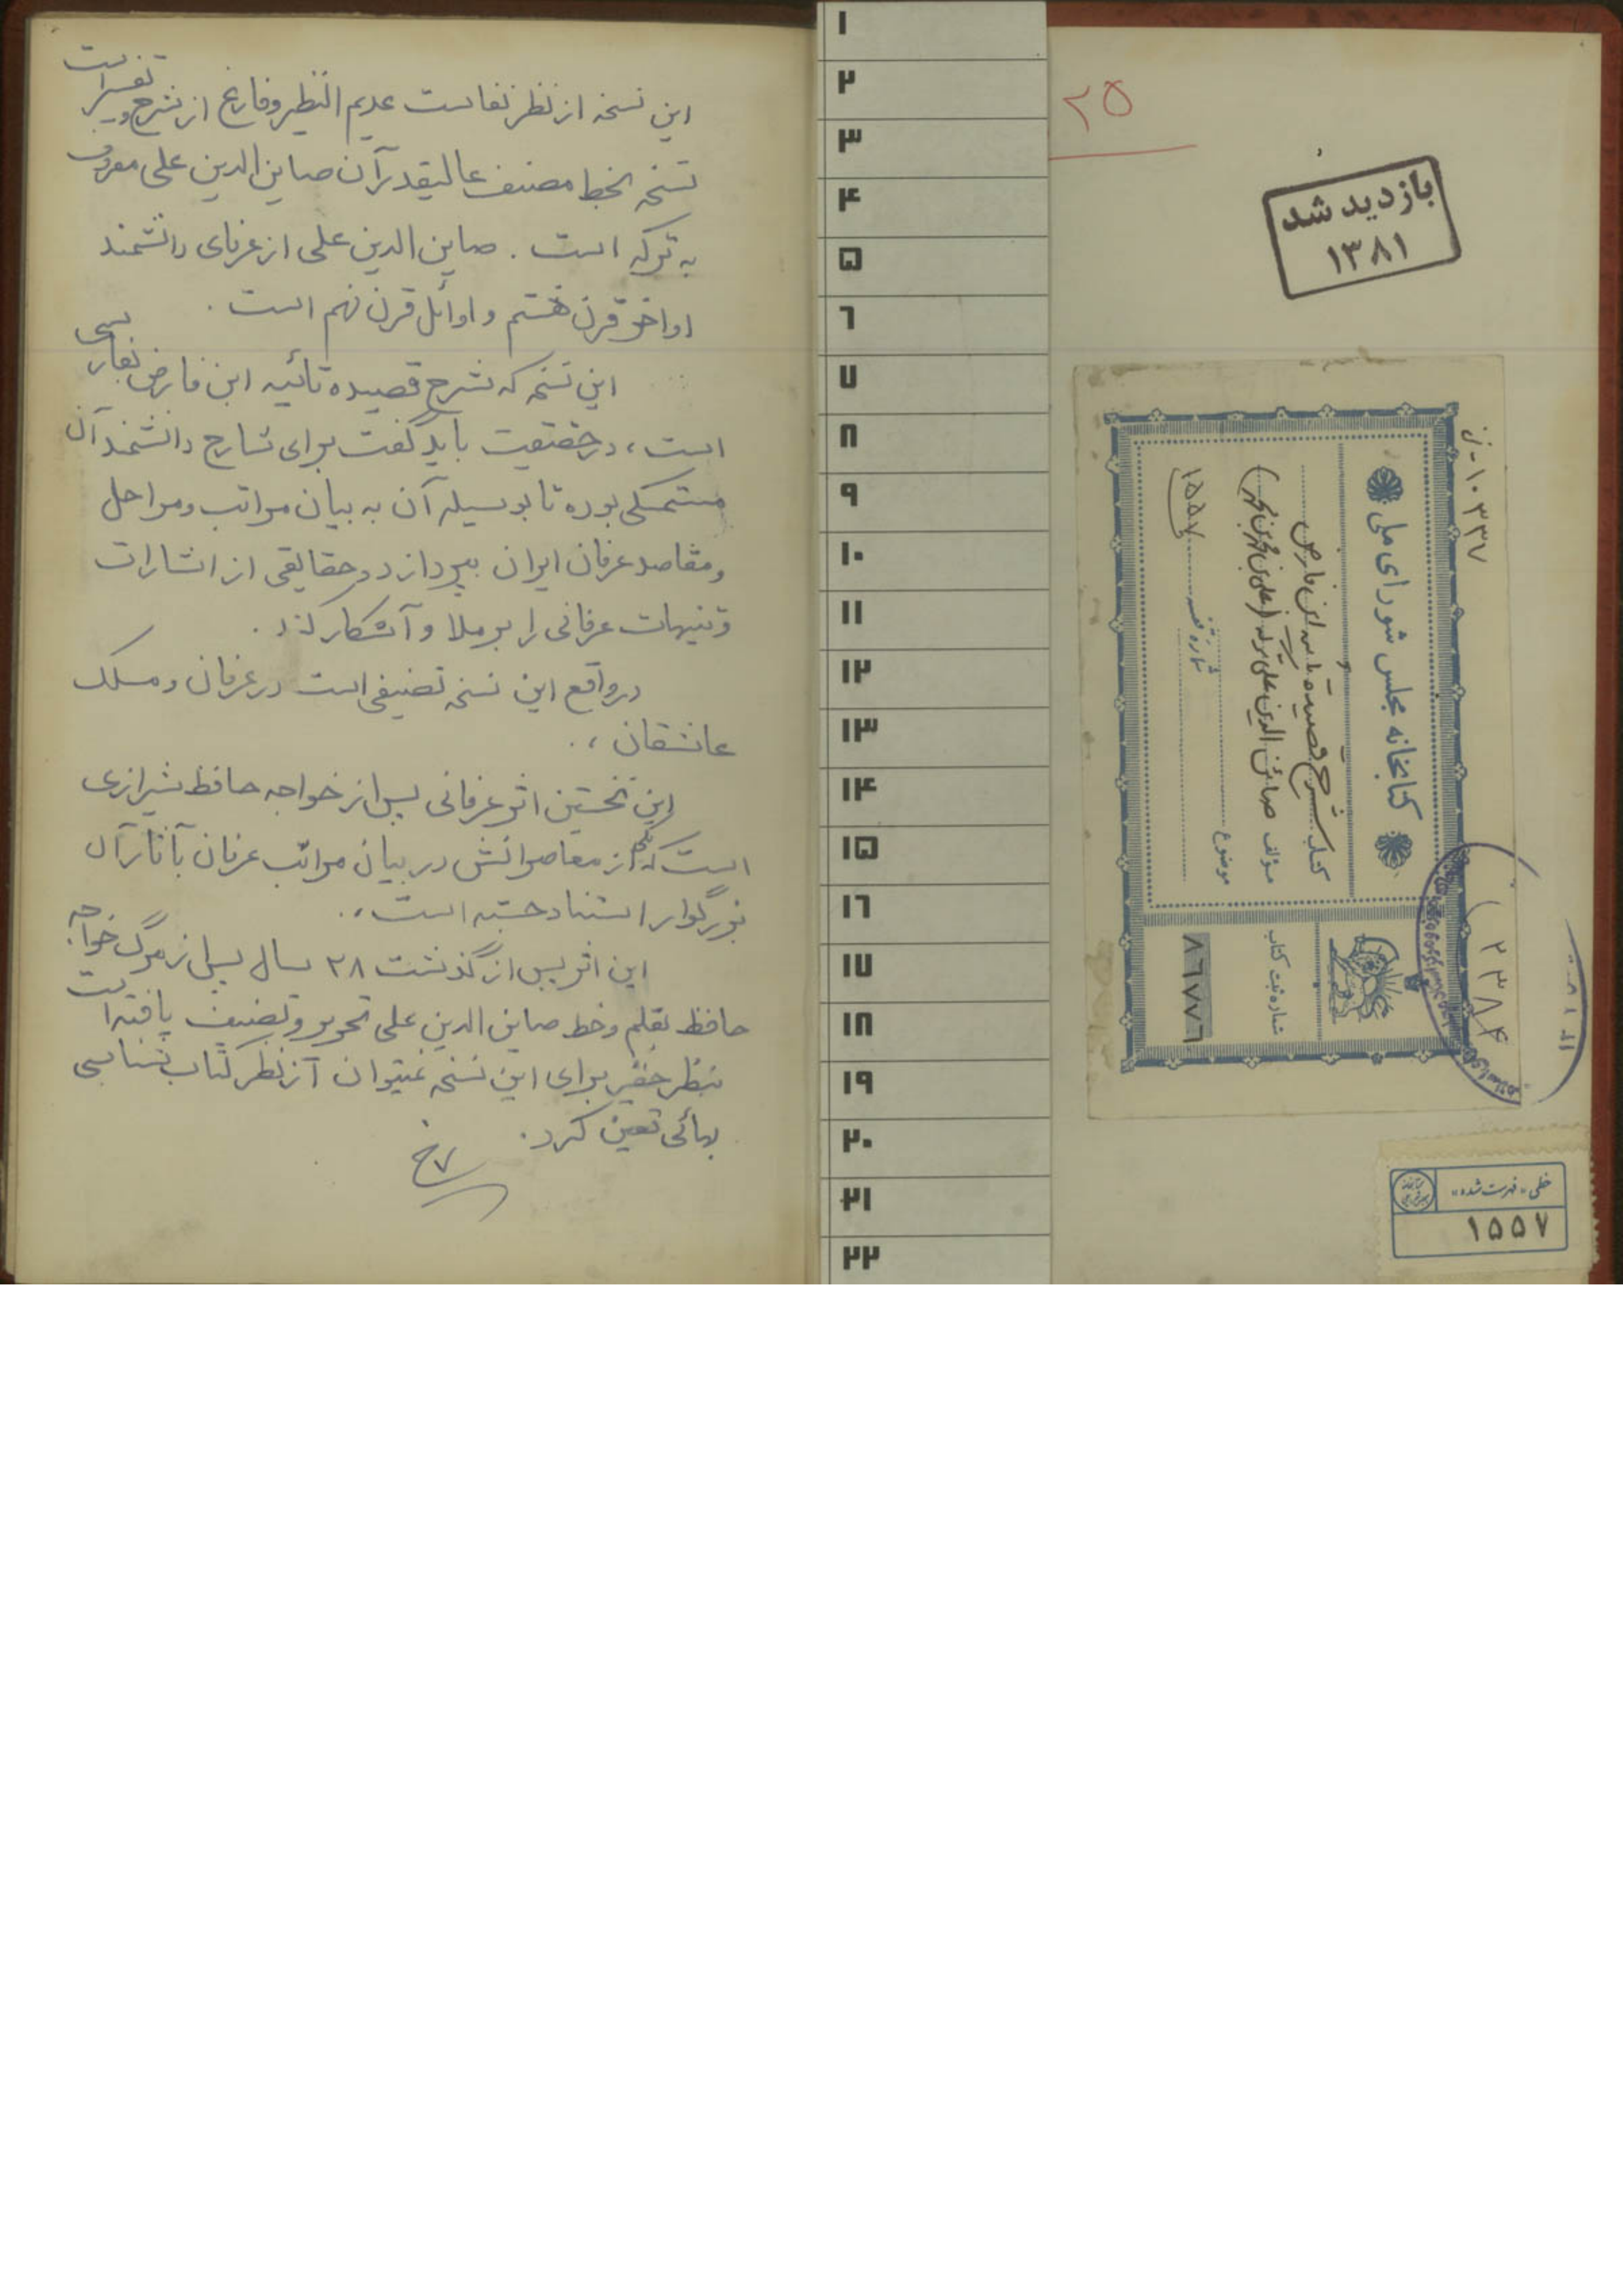 این نسخه از نظر نفاست عدیم النظیر و فارغ از شرح و تفسیر است
نسخه بخط مصنف عالیقدر آن صاین الدین علی معروف
به ترکه است . صاین الدین علی از عرفای دانشمند
اواخر قرن هشتم و اوائل قرن نهم است .
این نسخه که شرح قصیده تائیه ابن فارض بفارسی
است، در حقیقت باید گفت برای شارح دانشمند آن
مستمسکی بوده تا بوسیله آن به بیان مراتب و مراحل
و مقاصد عرفان ایران بپردازد و حقایقی از اشارات
و تنبیهات عرفانی را برملا و آشکار کند .
در واقع این نسخه تصنیفی است در عرفان و مسلک
عاشقان ، .
این نخستین اثر عرفانی پس از خواجه حافظ شیرازی
است که یکی از معاصرانش در بیان مراتب عرفان بآثار آن
بزرگوار استناد جسته است ، .
این اثر پس از گذشت ۲۸ سال پس از مرگ خواجه
حافظ بقلم و خط صاین الدین علی تحریر و تصنیف یافته است
بنظر حقیر برای این نسخه نمیتوان از نظر کتاب شناسی
بهائی تعین کرد .
۱
۲
۳
۴
۵
۶
۷
۸
۹
۱۰
۱۱
۱۲
۱۳
۱۴
۱۵
۱۶
۱۷
۱۸
۱۹
۲۰
۲۱
۲۲
۲۵
بازدید شد
۱۳۸۱
۱۰۳۳۷ - ز
کتابخانه مجلس شورای ملی
کتاب شرح قصیده تائیه ابن فارض
مؤلف صائن الدین علی ترکه (علی بن محمد بن محمد)
موضوع
شماره قفسه ۱۵۵۷
شماره ثبت کتاب
۸۶۷۷۶
۲۳۸۴
خطی «فهرست شده»
۱۵۵۷